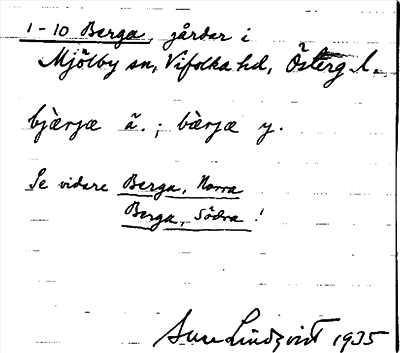 1-10 Berga, gårdar i
Mjölby sn, Vifolka hd, Österg. l.
bjærjæ ä. ; bærjæ y.
Se vidare Berga, Norra
Berga, Södra !
Sune Lindqvist 1935